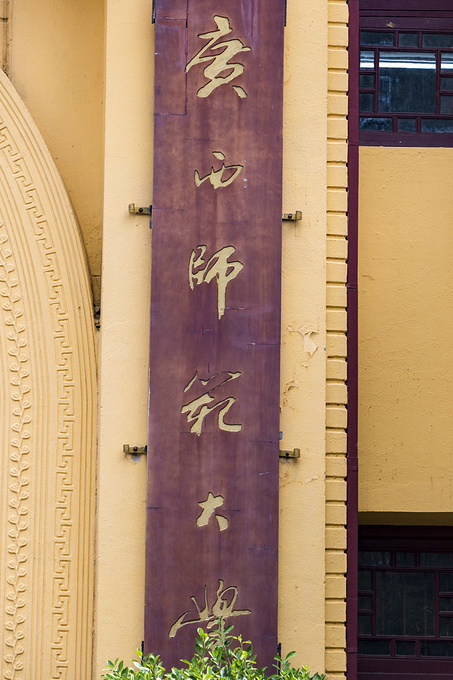 廣西師範大學